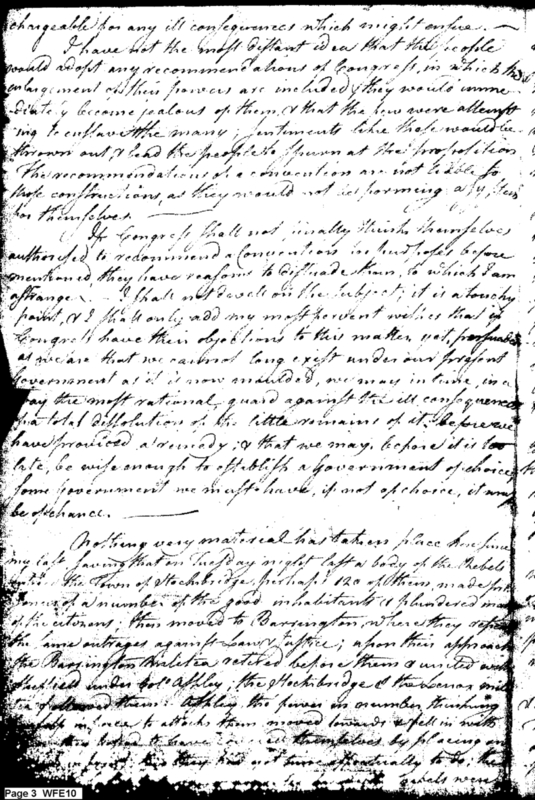 chargeable for any ill consequences which might ensue. —
I have not the most distant idea that the people
would adopt any recommendations of Congress, in which the
enlargement of their powers are included; they would imme
diately become jealous of them, & that the few were attempt
ing to enslave the many; sentiments like those would be
thrown out, & lead the people to spurn at the proposition
The recommendations of a convention are not liable to
those constructions, as they would not be forming a system
for themselves. —
If Congress shall not, finally think themselves
authorised to recommend a Convention for purposes before
mentioned, they have reasons to dissuade them, to which I am
a stranger. — I shall not dwell on the subject; it is a touchy
point, & I shall only add my most fervent wishes that if
Congress have their objections to this matter, yet, persuaded
as we are that we cannot long exist under our present
Government as it is now moulded, we may in time, in a
way the most rational, guard against the ill consequences
of a total dissolution of the little remains of it, before we
have provided a remedy; & that we may, before it is too
late, be wise enough to establish a Government of choice,
some Government we must have, if not of choice, it must
be of chance. —
Nothing very material has taken place here since
my last saving that on Tuesday night last a body of the Rebels
the Town of Stockbridge, perhaps 120 of them, made
of a number of the good inhabitants & plundered
of the citizens; then moved to Barrington, where they
the same outrages against Law & Justice; upon their approach
the Barrington Militia retired before them & united with
Sheffield under Colo Ashley, the Stockbridge & the Lenox
followed them. Ashley the power in number thinking
in force to attack them moved towards & fell in with
themselves by placing
they had got
Rebels were
Page 3 WFE10